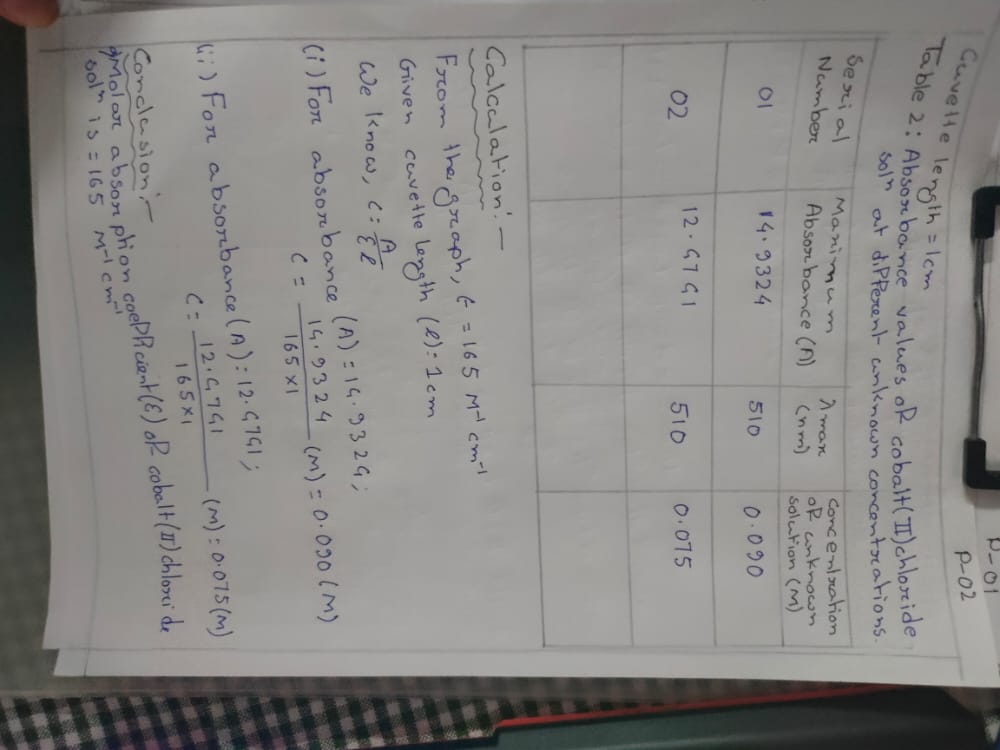 P-01
P-02
Cuvette length = 1cm
Table 2: Absorbance values of cobalt(II)chloride
solⁿ at different unknown concentrations.
Serial Number | Maximum Absorbance (A) | λmax (nm) | Concentration of unknown solution (M)
01 | 14.9324 | 510 | 0.090
02 | 12.4741 | 510 | 0.075
Calculation:-
From the graph, ε = 165 M⁻¹ cm⁻¹
Given cuvette length (l) = 1cm
We know, C = A/εl
(i) For absorbance (A) = 14.9324;
C = 14.9324/165×1 (M) = 0.090 (M)
(ii) For absorbance (A) = 12.4741;
C = 12.4741/165×1 (M) = 0.075(M)
Conclusion:-
Molar absorption coefficient(ε) of cobalt(II) chloride
solⁿ is = 165 M⁻¹ cm⁻¹